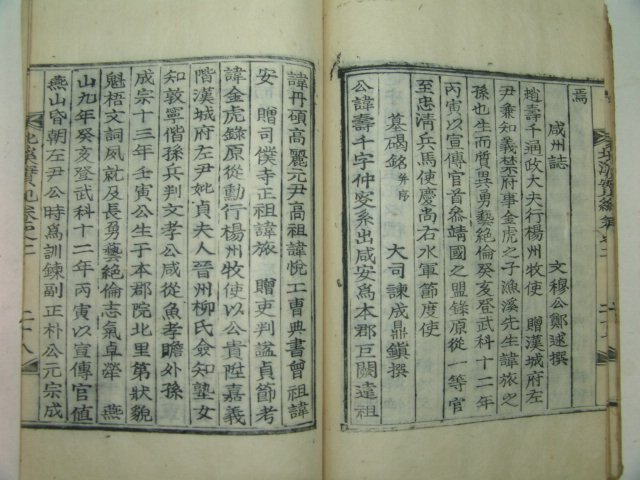 焉
咸州誌　文穆公鄭逑撰
趙壽千通政大夫行楊州牧使　贈漢城府左
尹兼知義禁府事金虎之子漁溪先生諱旅之
孫也生而質異勇藝絶倫癸亥登武科十二年
丙寅以宣傳官首參靖國之盟錄原從一等官
至忠清兵馬使慶尚右水軍節度使
墓碣銘并序　大司諫成鼎鎭撰
公諱壽千字仲安系出咸安爲本郡巨閥達祖
諱丹碩高麗元尹高祖諱悅工曹典書曾祖諱
安　贈司僕寺正祖諱旅　贈吏判諡貞節考
諱金虎錄原從勳行楊州牧使以公貴陞嘉義
階漢城府左尹妣貞夫人晉州柳氏僉知塾女
知敦寧偕孫兵判文孝公咸從魚孝瞻外孫
成宗十三年壬寅公生于本郡院北里第狀貌
魁梧文詞夙就及長勇藝絶倫志氣卓犖　燕
山九年癸亥登武科十二年丙寅以宣傳官値
燕山昏朝左尹公時爲訓鍊副正朴公元宗成
二十八